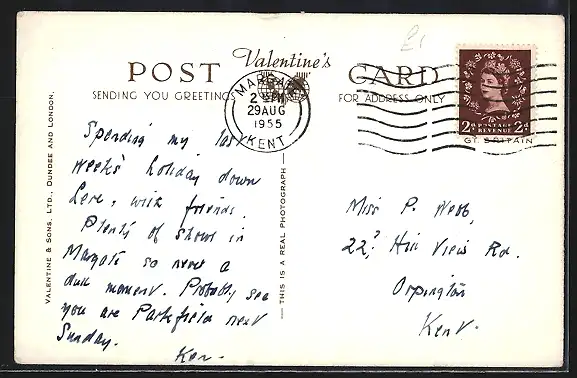 £1
Valentine's
POST CARD
SENDING YOU GREETING
FOR ADDRESS ONLY
MARGATE
2 PM
29 AUG
1955
KENT
2D POSTAGE REVENUE 2D
GT. BRITAIN
VALENTINE & SONS, LTD., DUNDEE AND LONDON.
THIS IS A REAL PHOTOGRAPH
Spending my last
weeks holiday down
here, with friends.
Plenty of shows in
Margate so never a
dull moment. Probably see
you are Parkfield next
Sunday.
Ken.
Miss P. Webb,
22, Hill View Rd.
Orpington
Kent.